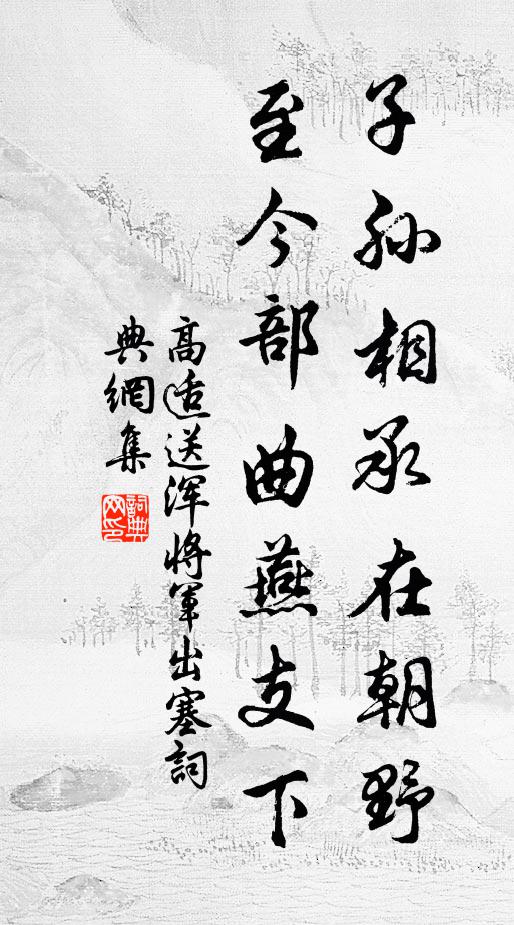 子孙相承在朝野
至今部曲燕支下
高适送浑将军出塞詞
典網集
詞典網印